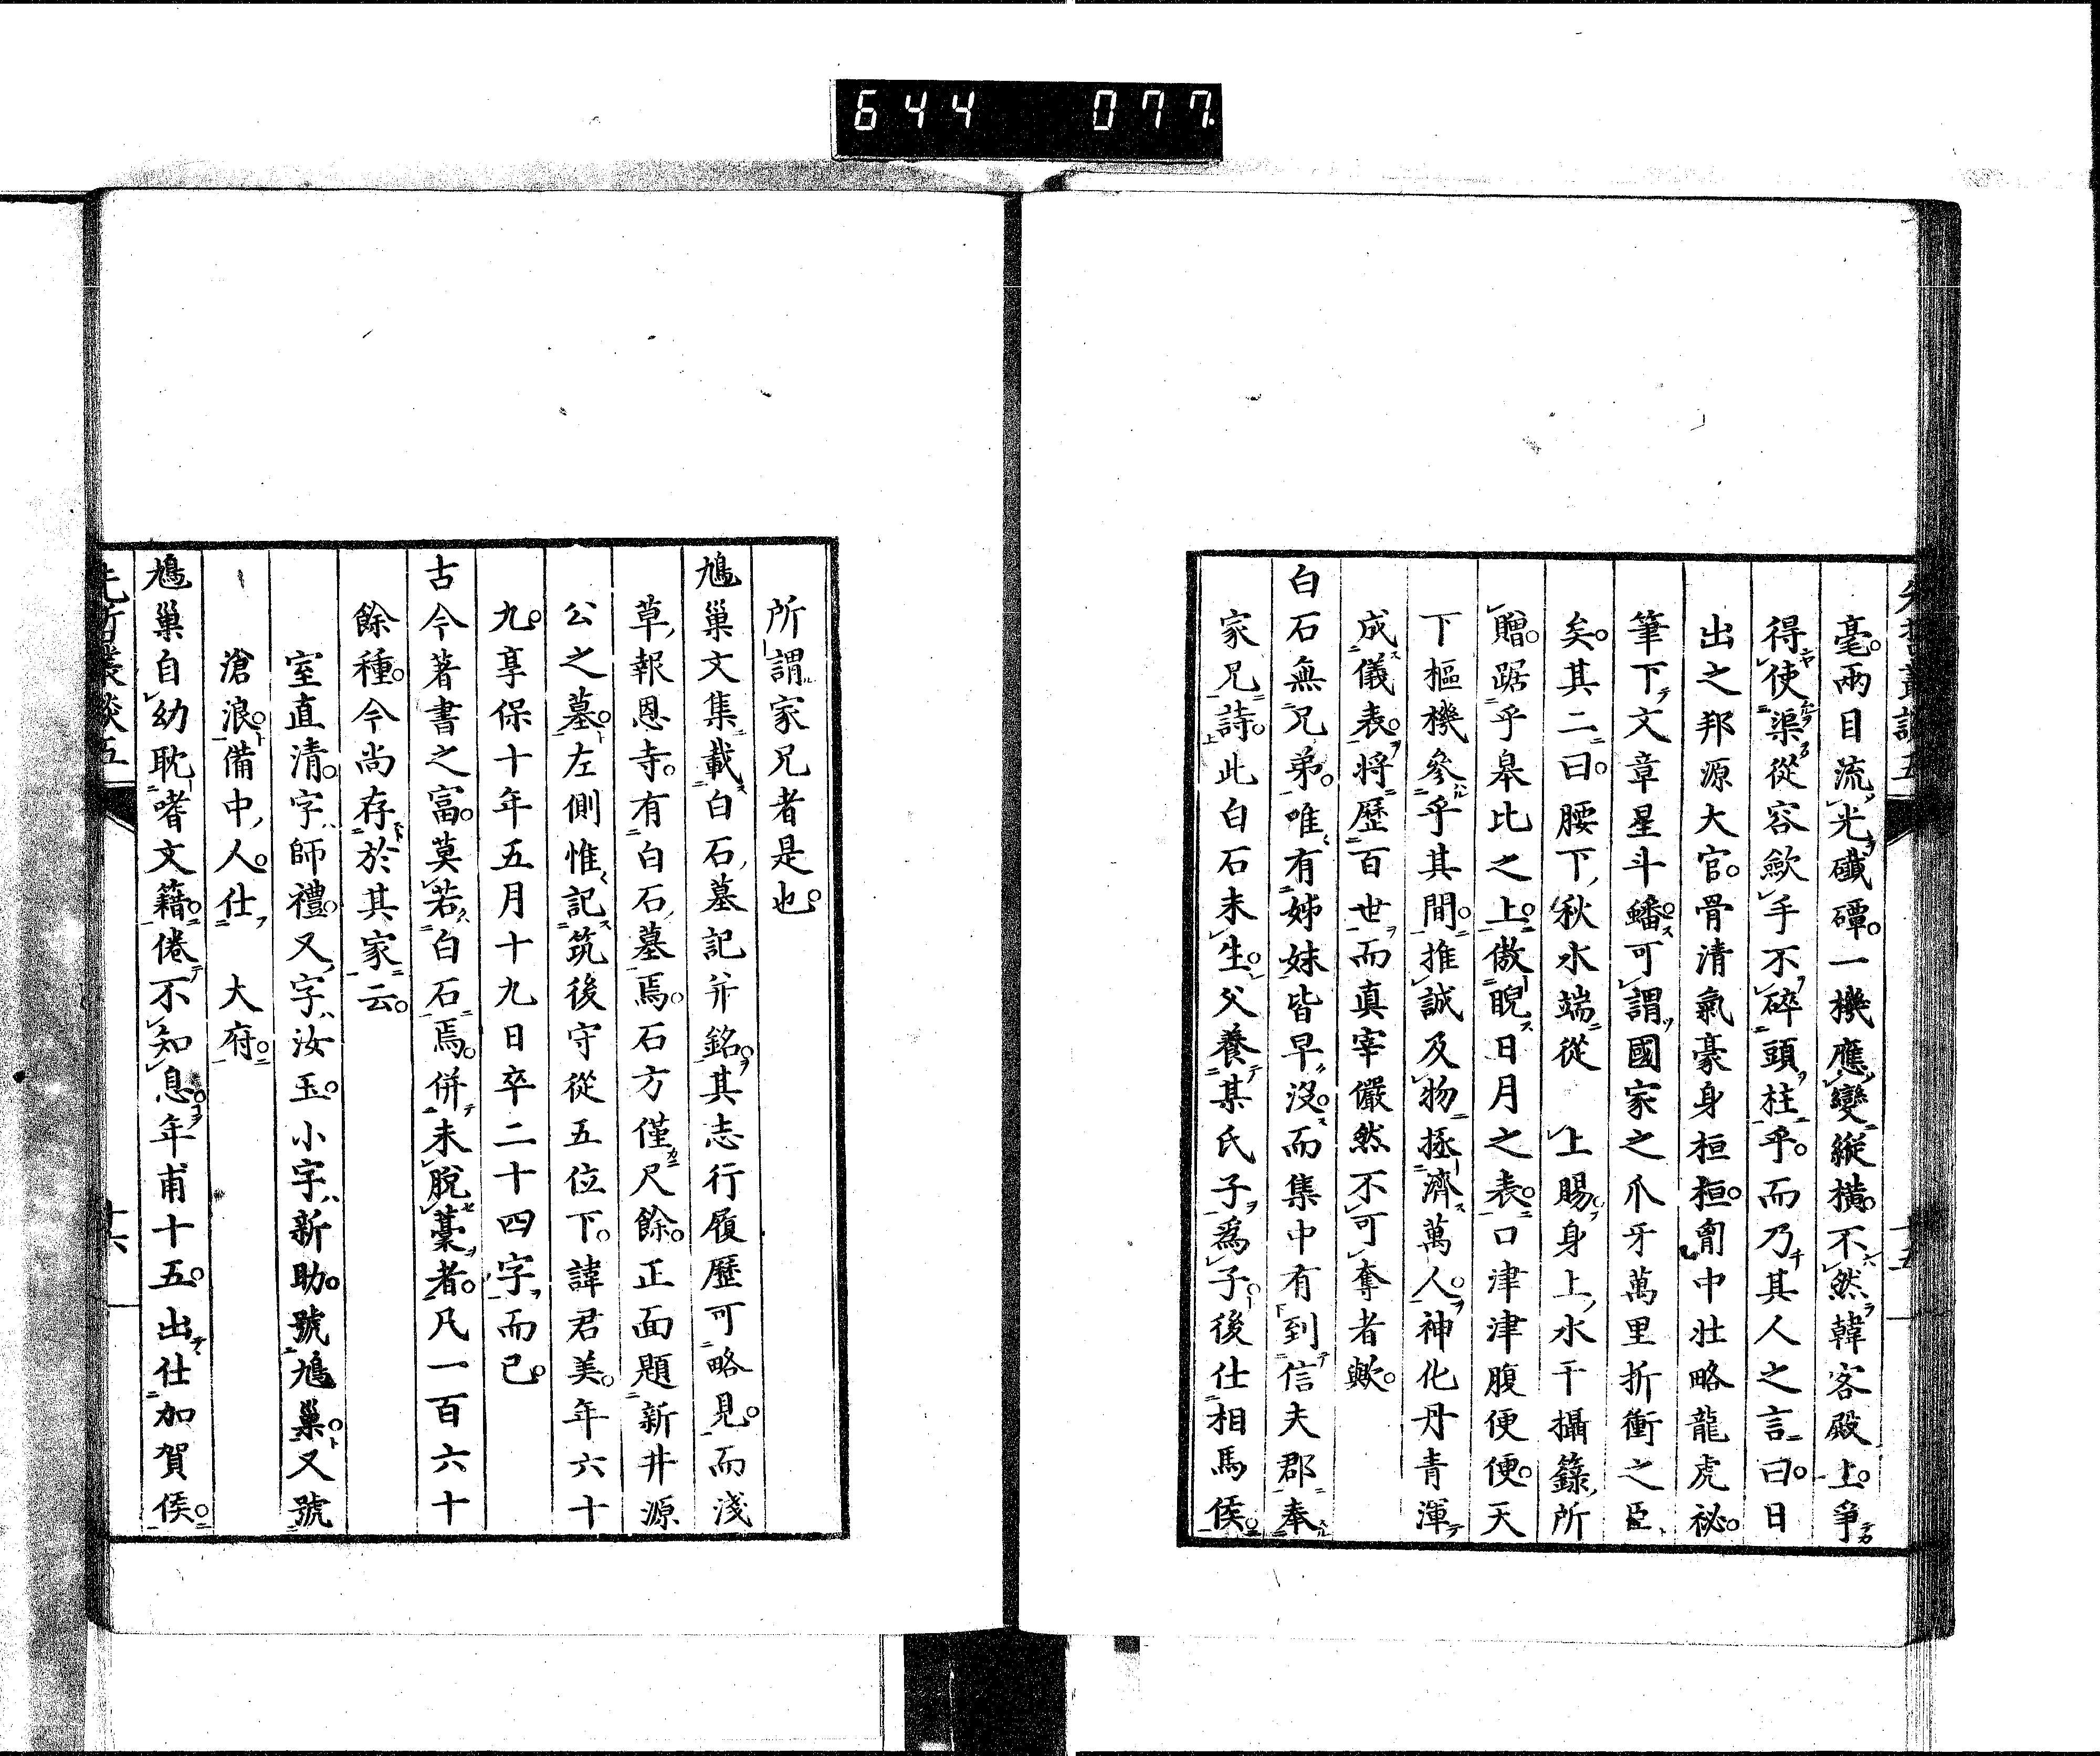 644 077
毫。兩目流光礥磹。一機應變縱橫。不然韓客殿上。爭
得使渠從容歛手不碎頭柱乎。而乃其人之言曰。日
出之邦源大官。骨清氣豪身桓桓。胷中壯略龍虎祕。
筆下文章星斗蟠。可謂國家之爪牙萬里折衝之臣
矣。其二曰。腰下秋水端從 上賜。身上水干攝籙所
贈。踞乎皋比之上。傲睨日月之表。口津津腹便便。天
下樞機參乎其間。推誠及物拯濟萬人。神化丹青渾
成儀表。將歷百世而真宰儼然不可奪者歟。
白石無兄弟。唯有姊妹皆早沒。而集中有到信夫郡奉
家兄詩。此白石未生。父養某氏子爲子。後仕相馬侯。
所謂家兄者是也。
鳩巢文集載白石墓記并銘。其志行履歷可略見。而淺
草報恩寺。有白石墓焉。石方僅尺餘。正面題新井源
公之墓。左側惟記筑後守從五位下。諱君美。年六十
九。享保十年五月十九日卒二十四字而已。
古今著書之富。莫若白石焉。併未脫藁者。凡一百六十
餘種。今尚存於其家云。
室直清。字師禮。又字汝玉。小字新助。號鳩巢。又號
滄浪。備中人。仕 大府。
鳩巢自幼耽嗜文籍。倦不知息。年甫十五。出仕加賀侯。